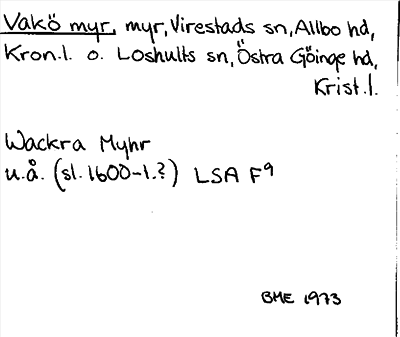 Vakö myr, myr, Virestads sn, Allbo hd,
Kron.l. o. Loshults sn, Östra Göinge hd,
Krist.l.
Wackra Myhr
u.å. (sl. 1600-l.?) LSA F9
BME 1973